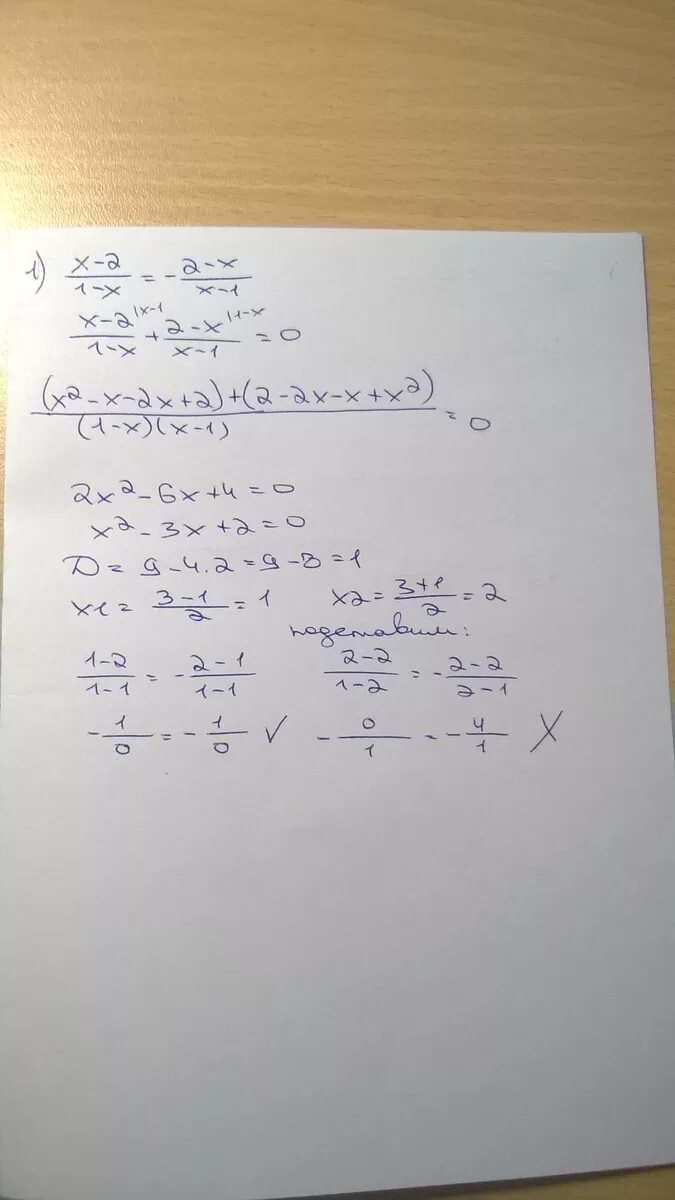 1) (x-2)/(1-x) = -(2-x)/(x-1)
(x-2)/(1-x) |x-1 + (2-x)/(x-1) |1-x = 0
((x²-x-2x+2)+(2-2x-x+x²))/((1-x)(x-1)) = 0
2x²-6x+4=0
x²-3x+2=0
D = 9-4·2=9-8=1
x1 = (3-1)/2 = 1 x2 = (3+1)/2 = 2
подставим:
(1-2)/(1-1) = -(2-1)/(1-1) (2-2)/(1-2) = -(2-2)/(2-1)
-1/0 = -1/0 ✓ -0/1 = -4/1 X